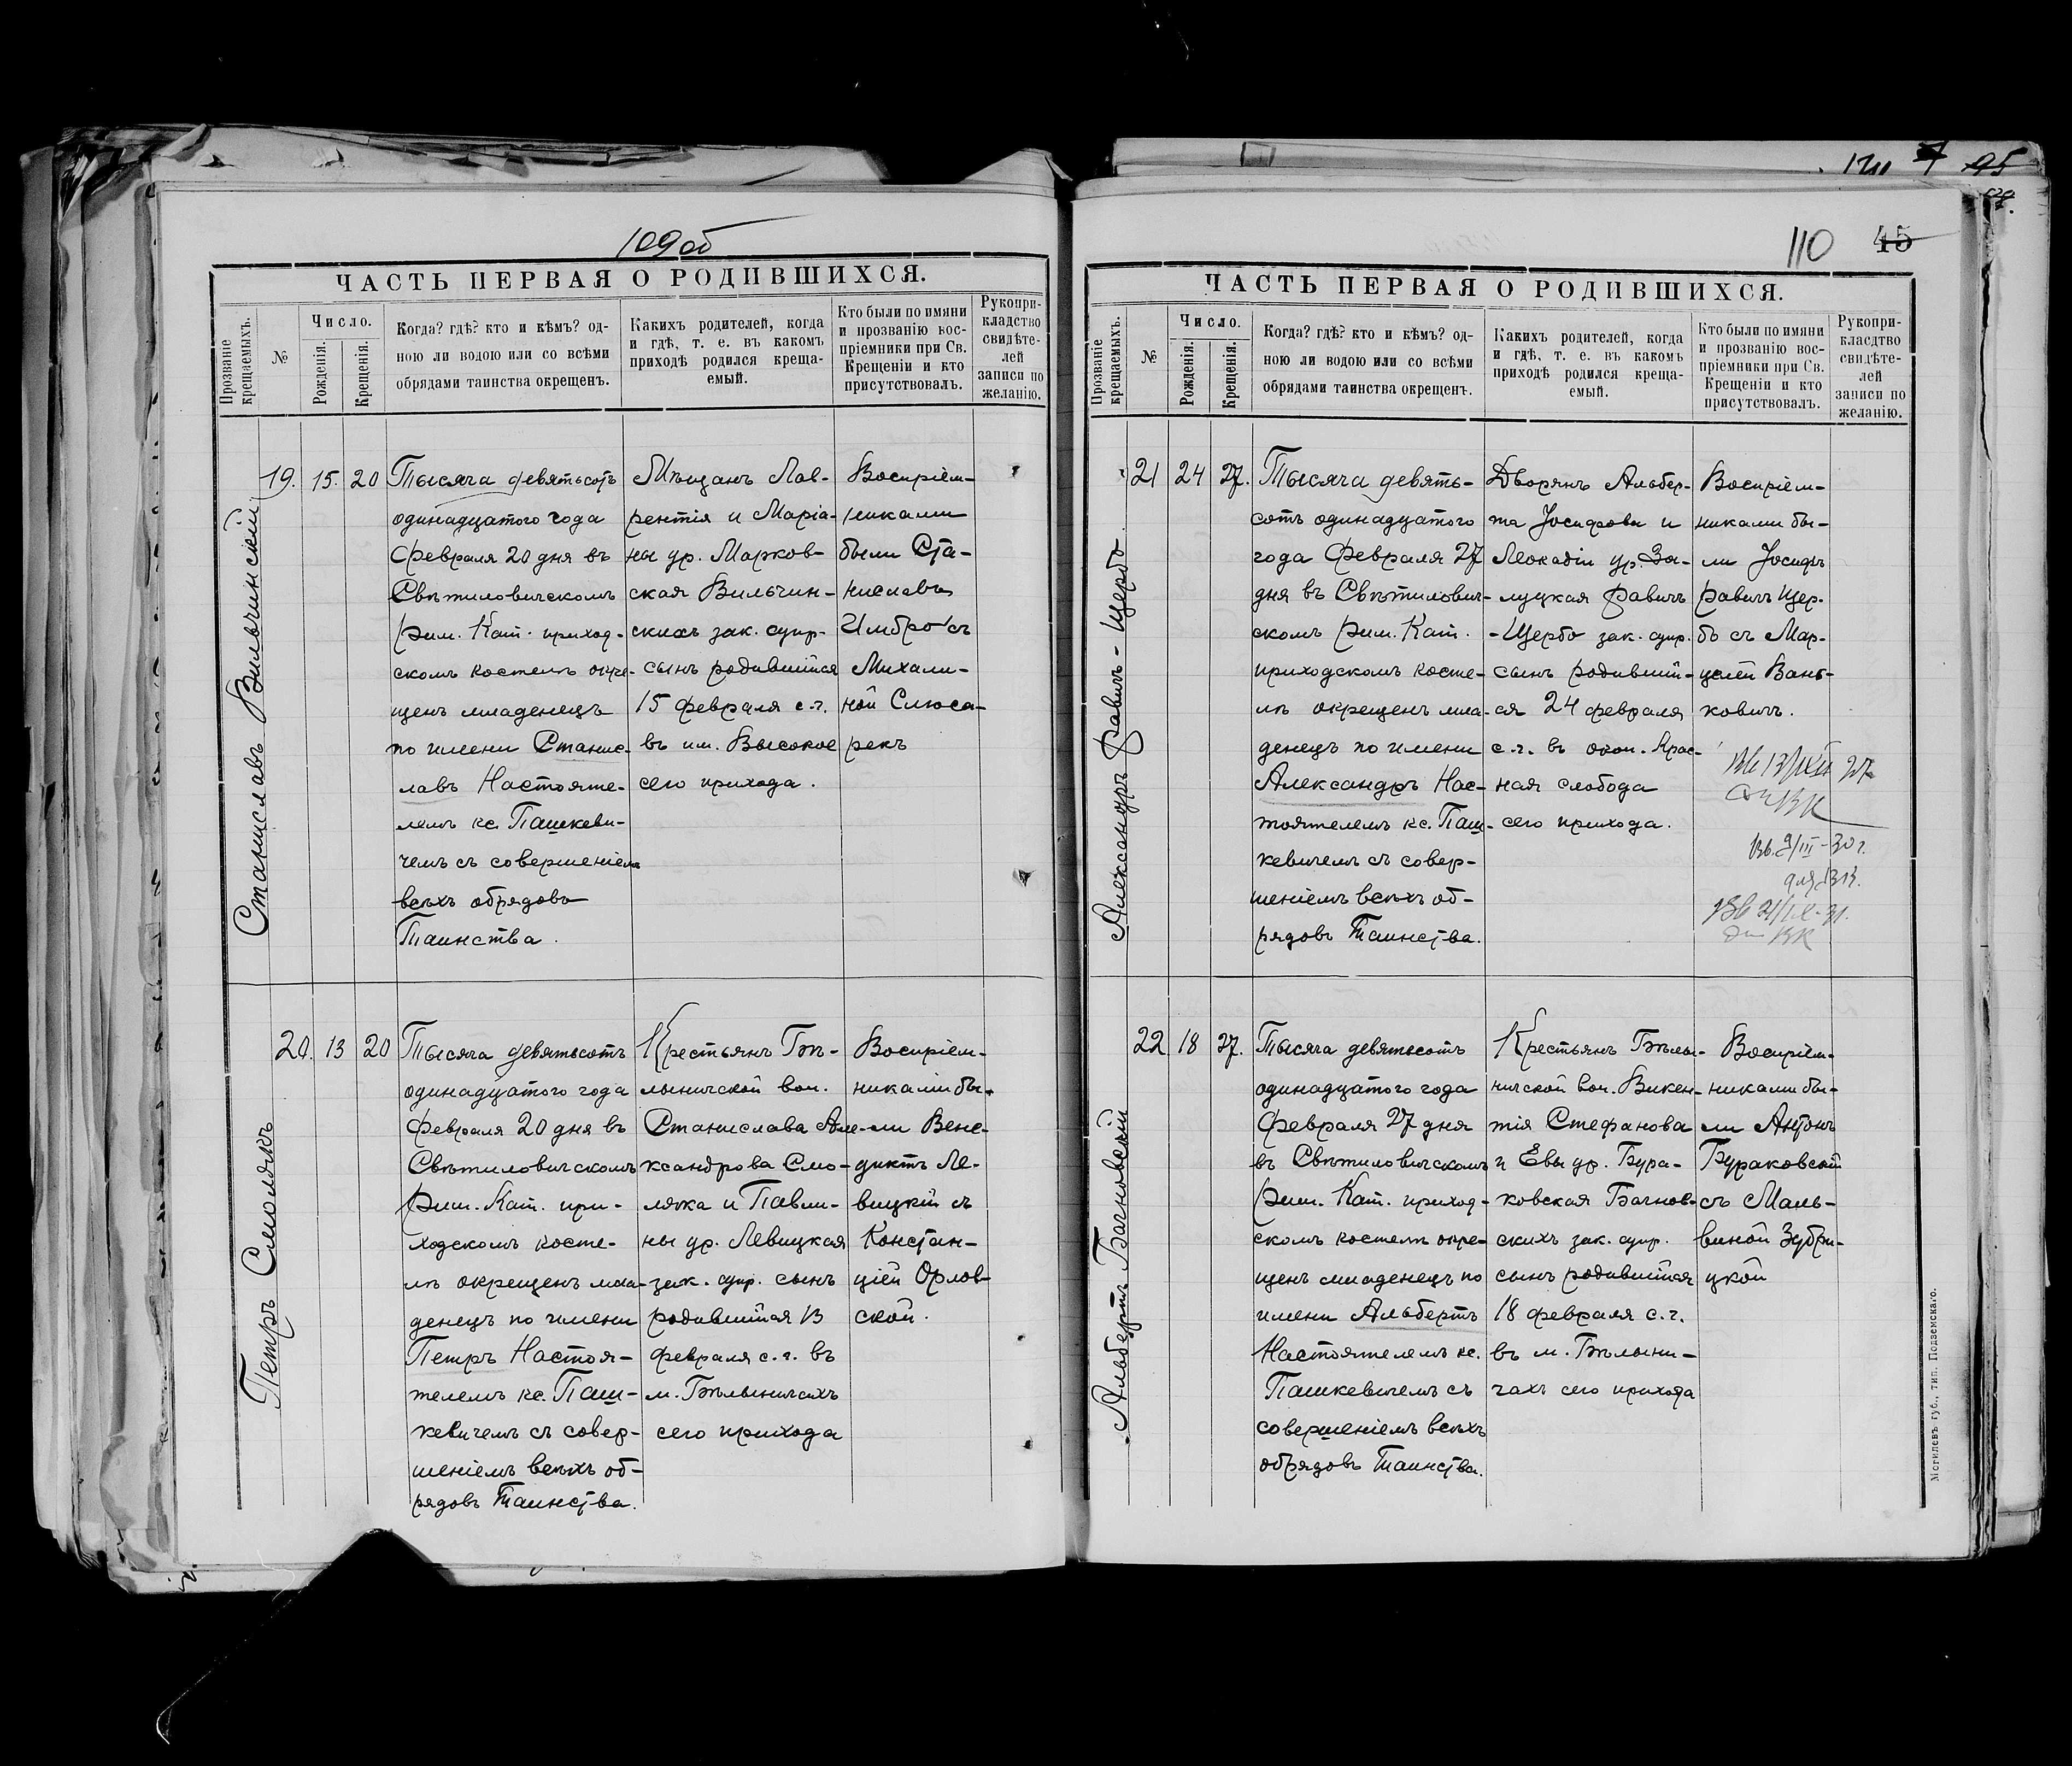 109об
ЧАСТЬ ПЕРВАЯ О РОДИВШИХСЯ.
Прозваніе крещаемыхъ.
№
Число.
Рожденія.
Крещенія.
Когда? гдѣ? кто и кѣмъ? од-
ною ли водою или со всѣми
обрядами таинства окрещенъ.
Какихъ родителей, когда
и гдѣ, т. е. въ какомъ
приходѣ родился креща-
емый.
Кто были по имяни
и прозванію вос-
пріемники при Св.
Крещеніи и кто
присутствовалъ.
Рукопри-
кладство
свидѣте-
лей
записи по
желанію.
Станиславъ Вильчинскій
19. 15. 20
Тысяча девятьсотъ
одинадцатого года
Февраля 20 дня въ
Свѣтиловическомъ
Рим. Кат. приход-
скомъ костелѣ окре-
щенъ младенецъ
по имени Станис-
лавъ Настояте-
лемъ кс. Пашкеви-
чемъ съ совершеніемъ
всѣхъ обрядовъ
Таинства.
Мѣщанъ Лав-
рентія и Маріа-
ны ур. Марков-
ская Вильчин-
скихъ зак. супр.
сынъ родившійся
15 февраля с.г.
въ им. Высокое
сего прихода.
Воспріем-
никами
были Ста-
ниславъ
Имбро съ
Михали-
ной Слюса-
рекъ
Петръ Смолякъ
20. 13 20
Тысяча девятьсотъ
одинадцатого года
Февраля 20 дня въ
Свѣтиловическомъ
Рим. Кат. при-
ходскомъ косте-
лѣ окрещенъ мла-
денецъ по имени
Петръ Настоя-
телемъ кс. Паш-
кевичемъ съ совер-
шеніемъ всѣхъ об-
рядовъ Таинства.
Крестьянъ Бѣ-
лыничской вол.
Станислава Але-
ксандрова Смо-
ляка и Павли-
ны ур. Левицкая
зак. супр. сынъ
родившійся 13
февраля с.г. въ
м. Бѣлыничахъ
сего прихода
Воспріем-
никами бы-
ли Бене-
диктъ Ле-
вицкій съ
Констан-
ціей Орлов-
ской.
110 45
ЧАСТЬ ПЕРВАЯ О РОДИВШИХСЯ.
Прозваніе крещаемыхъ.
№
Число.
Рожденія.
Крещенія.
Когда? гдѣ? кто и кѣмъ? од-
ною ли водою или со всѣми
обрядами таинства окрещенъ.
Какихъ родителей, когда
и гдѣ, т. е. въ какомъ
приходѣ родился креща-
емый.
Кто были по имяни
и прозванію вос-
пріемники при Св.
Крещеніи и кто
присутствовалъ.
Рукопри-
класдтво
свидѣте-
лей
записи по
желанію.
Александръ Равичъ-Щербо
21 24 27.
Тысяча девять-
сотъ одинадцатого
года Февраля 27
дня въ Свѣтилович-
скомъ Рим. Кат.
приходскомъ косте-
лѣ окрещенъ мла-
денецъ по имени
Александръ Нас-
тоятелемъ кс. Паш-
кевичемъ съ совер-
шеніемъ всѣхъ об-
рядовъ Таинства.
Дворянъ Альбер-
та Іосифова и
Леокадіи ур. За-
луцкая Равичъ
-Щербо зак. супр.
сынъ родившій-
ся 24 февраля
с.г. въ окол. Крас-
ная слобода
сего прихода.
Воспріем-
никами бы-
ли Іосифъ
Равичъ Щер-
бо съ Мар-
целей Вань-
ковичъ.
Альбертъ Бачновскій
22 18 27.
Тысяча девятьсотъ
одинадцатого года
Февраля 27 дня
въ Свѣтиловическомъ
Рим. Кат. приход-
скомъ костелѣ окре-
щенъ младенецъ по
имени Альбертъ
Настоятелемъ кс.
Пашкевичемъ съ
совершеніемъ всѣхъ
обрядовъ Таинства.
Крестьянъ Бѣлы-
ничской вол. Викен-
тія Стефанова
и Евы ур. Бура-
ковская Бачнов-
скихъ зак. супр.
сынъ родившійся
18 февраля с.г.
въ м. Бѣлыни-
чахъ сего прихода
Воспріем-
никами бы-
ли Антонъ
Бураковскій
съ Маль-
виной Зубри-
цкой
Могилевъ губ., тип. Подземскаго.